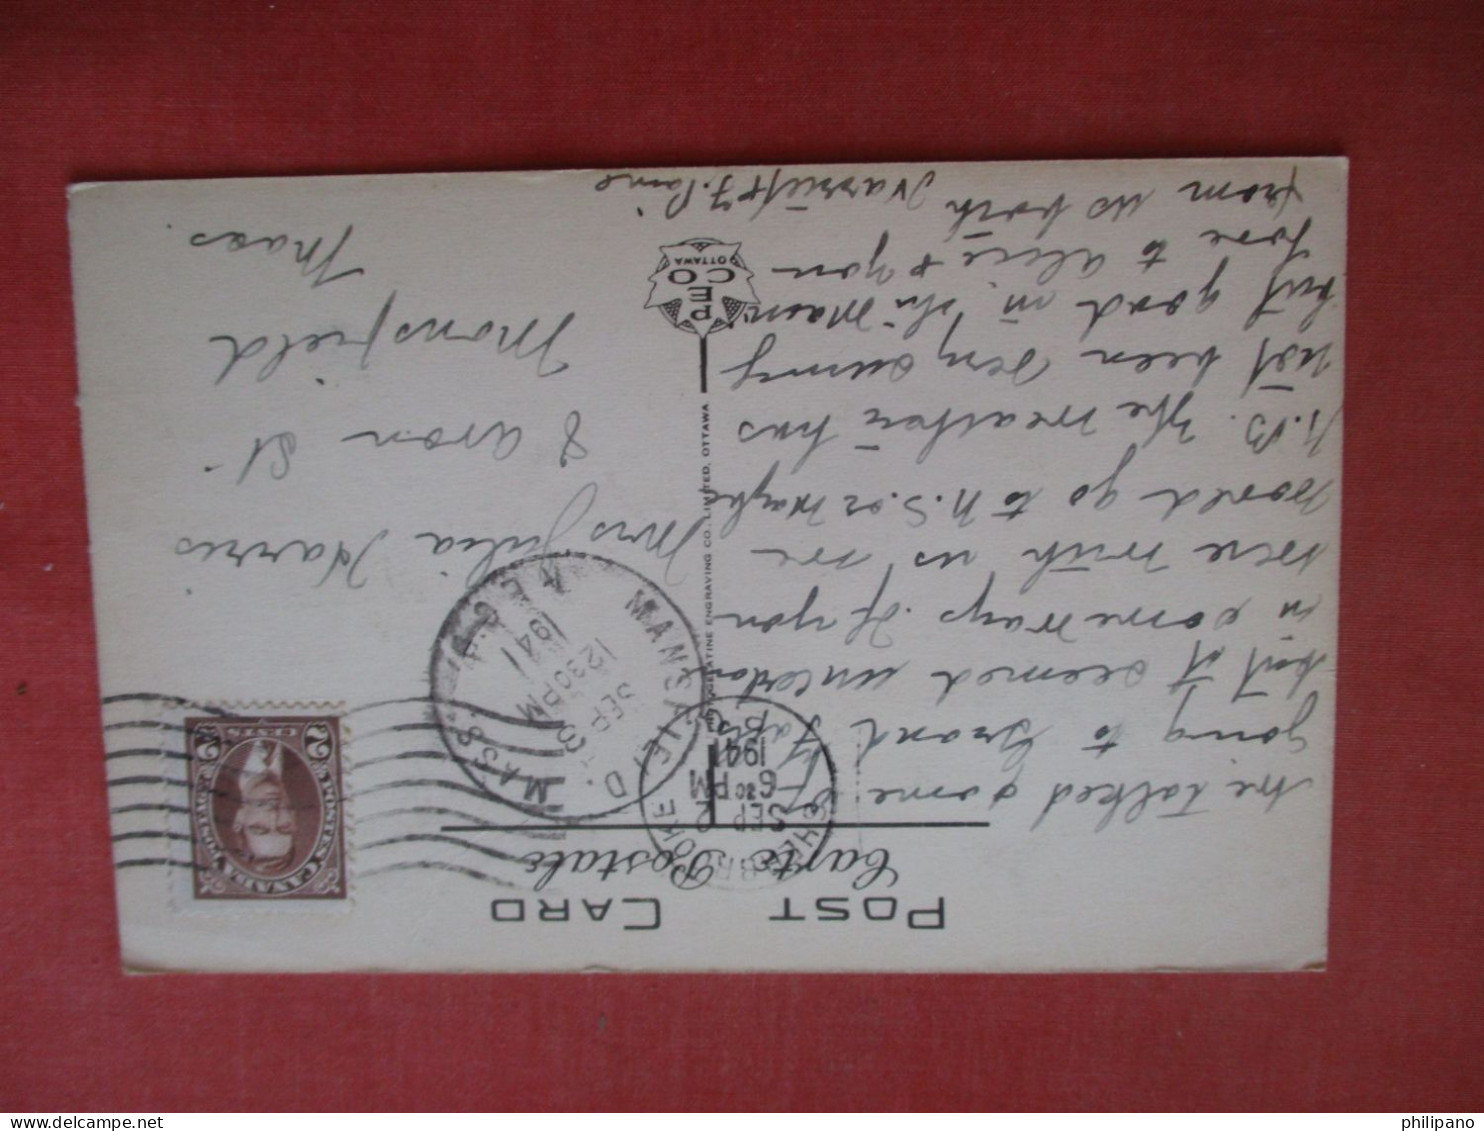 POST CARD
Carte Postale
We talked some
going to Grand Falls
but it seemed
in some ways. If you
were with us we
would go to N.S. or maybe
N.B. The weather has
not been very sunny
but good in the main
love to Alice & you
from us both Harriet & J.
SHERBROOKE
SEP 2
6 30 PM
1941
MANSFIELD
MASS.
SEP 3
12 30 PM
1941
Mrs Julia Harris
8 Avon St.
Mansfield
Mass
PHOTOGELATINE ENGRAVING CO., LIMITED, OTTAWA
PECO
OTTAWA
CANADA
POSTES POSTAGE
2 CENTS 2
philipano